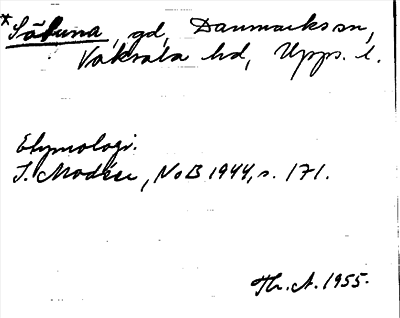 *Säbuna, gd, Danmarks sn,
Vaksala hd, Upps. l.
Etymologi.
I. Modéer, NoB 1944, s. 171.
Th. A. 1955.